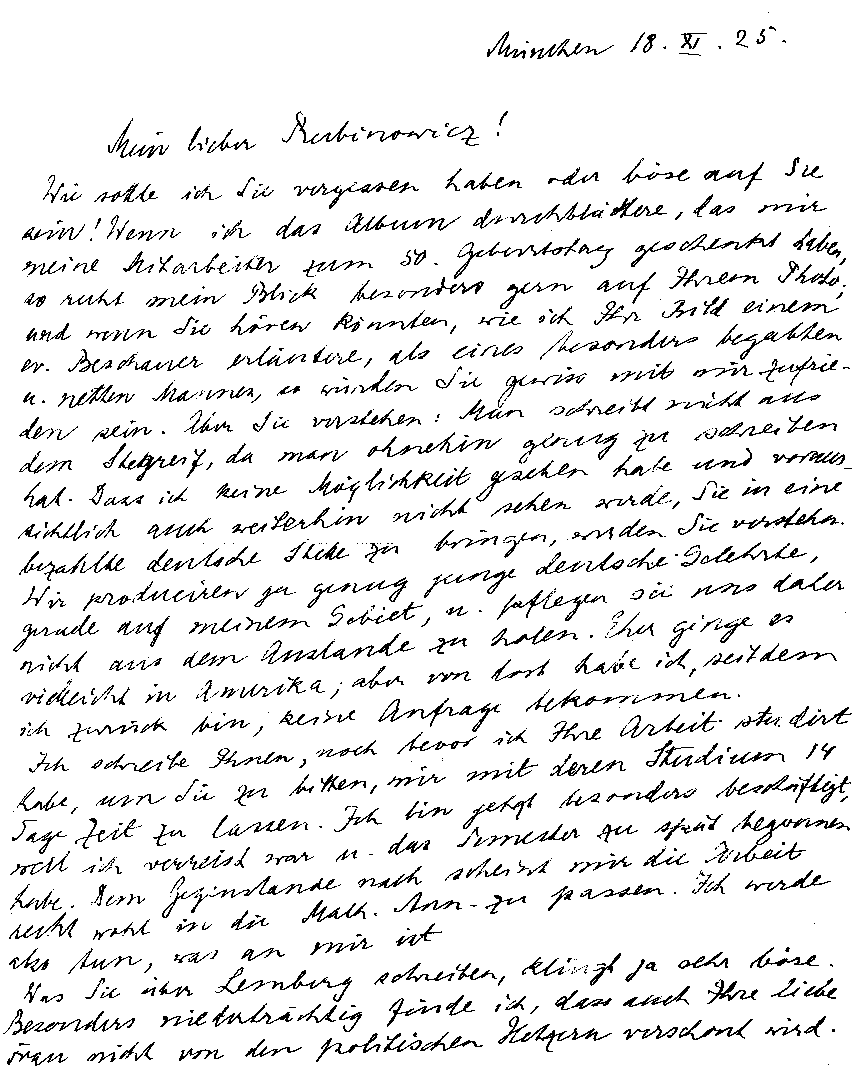 München 18. XI. 25.
Mein lieber Rubinowicz!
Wie sollte ich Sie vergessen haben oder böse auf Sie
sein! Wenn ich das Album durchblättere, das mir
meine Mitarbeiter zum 50. Geburtstag geschenkt haben,
so ruht mein Blick besonders gern auf Ihrem Photo;
und wenn Sie hören könnten, wie ich Ihr Bild einem
ev. Beschauer erläutere, als eines besonders begabten
u. netten Mannes, so würden Sie gewiss mit mir zufrie-
den sein. Aber Sie verstehen: Man schreibt nicht aus
dem Stegreif, da man ohnehin genug zu schreiben
hat. Dass ich keine Möglichkeit gesehen habe und voraus-
sichtlich auch weiterhin nicht sehen werde, Sie in eine
bezahlte deutsche Stelle zu bringen, werden Sie verstehen.
Wir produciren ja genug junge deutsche Gelehrte,
gerade auf meinem Gebiet, u. pflegen sie uns daher
nicht aus dem Auslande zu holen. Eher ginge es
vielleicht in Amerika; aber von dort habe ich, seitdem
ich zurück bin, keine Anfrage bekommen.
Ich schreibe Ihnen, noch bevor ich Ihre Arbeit studirt
habe, um Sie zu bitten, mir mit deren Studium 14
Tage Zeit zu lassen. Ich bin jetzt besonders beschäftigt,
weil ich verreist war u. das Semester zu spät begonnen
habe. Dem Gegenstande nach scheint mir die Arbeit
recht wohl in die Math. Ann. zu passen. Ich werde
also tun, was an mir ist
Was Sie über Lemberg schreiben, klingt ja sehr böse.
Besonders niederträchtig finde ich, dass auch Ihre liebe
Frau nicht von den politischen Hetzern verschont wird.